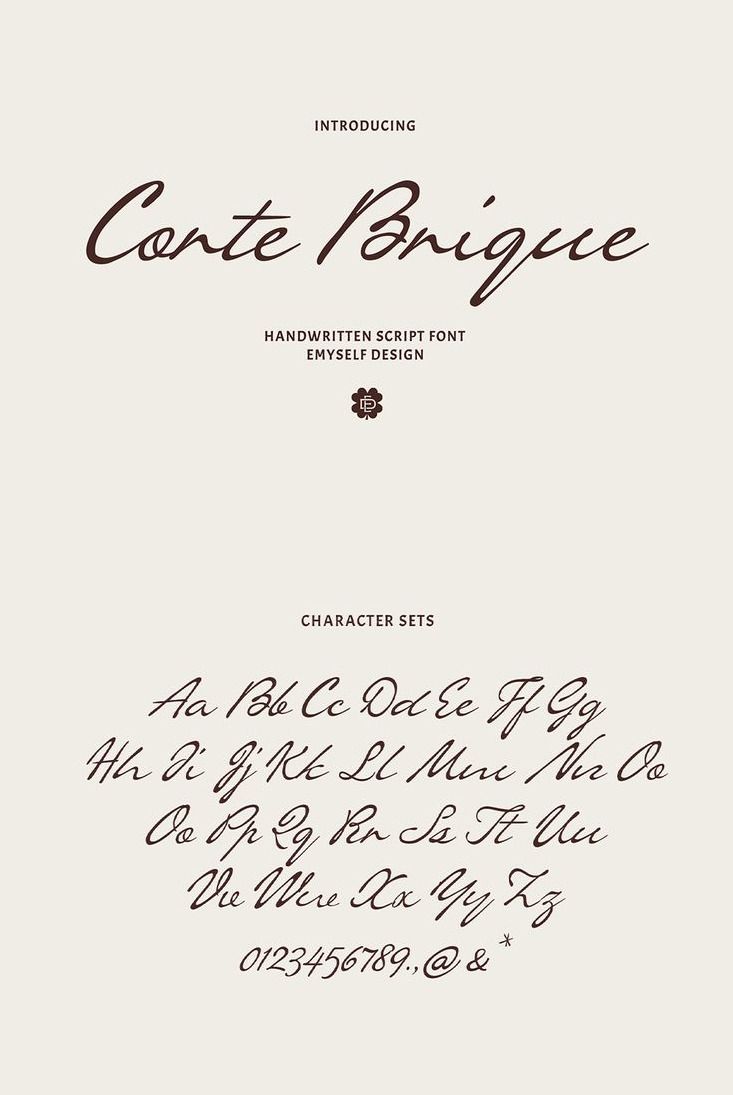 INTRODUCING
Conte Brique
HANDWRITTEN SCRIPT FONT
EMYSELF DESIGN
ED
CHARACTER SETS
Aa Bb Cc Dd Ee Ff Gg
Hh Ii Jj Kk Ll Mm Nn Oo
Oo Pp Qq Rr Ss Tt Uu
Vv Ww Xx Yy Zz
0123456789.,@&*